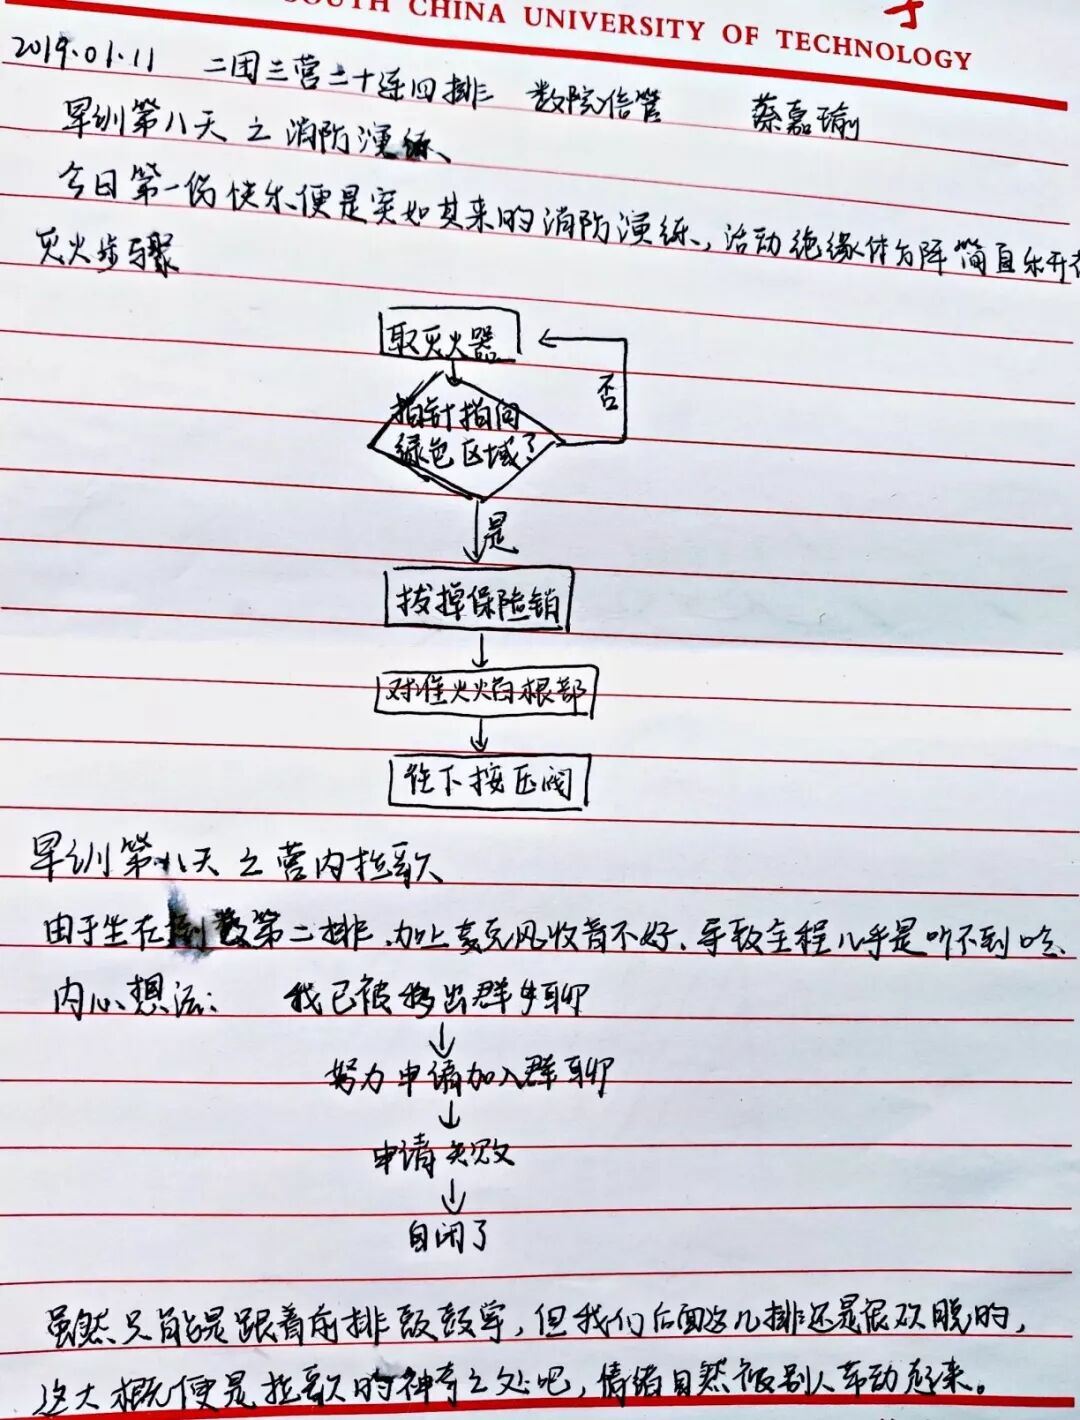 SOUTH CHINA UNIVERSITY OF TECHNOLOGY
2019.01.11 二团三营二十连四排 数院信管 蔡嘉瑜
早训第八天之消防演练
今日第一份快乐便是突如其来的消防演练,活动绝缘体方阵简直乐开
灭火步骤
取灭火器
否
指针指向
绿色区域?
是
拔掉保险销
对准火焰根部
往下按压阀
早训第八天之营内拉歌
由于坐在倒数第二排,加上麦克风收音不好,导致全程几乎是听不到
内心想法: 我已被移出群聊
努力申请加入群聊
申请失败
自闭了
虽然只能是跟着前排鼓鼓掌,但我们后面这几排还是很欢脱的,
这大概便是拉歌的神奇之处吧,情绪自然被别人带动起来。